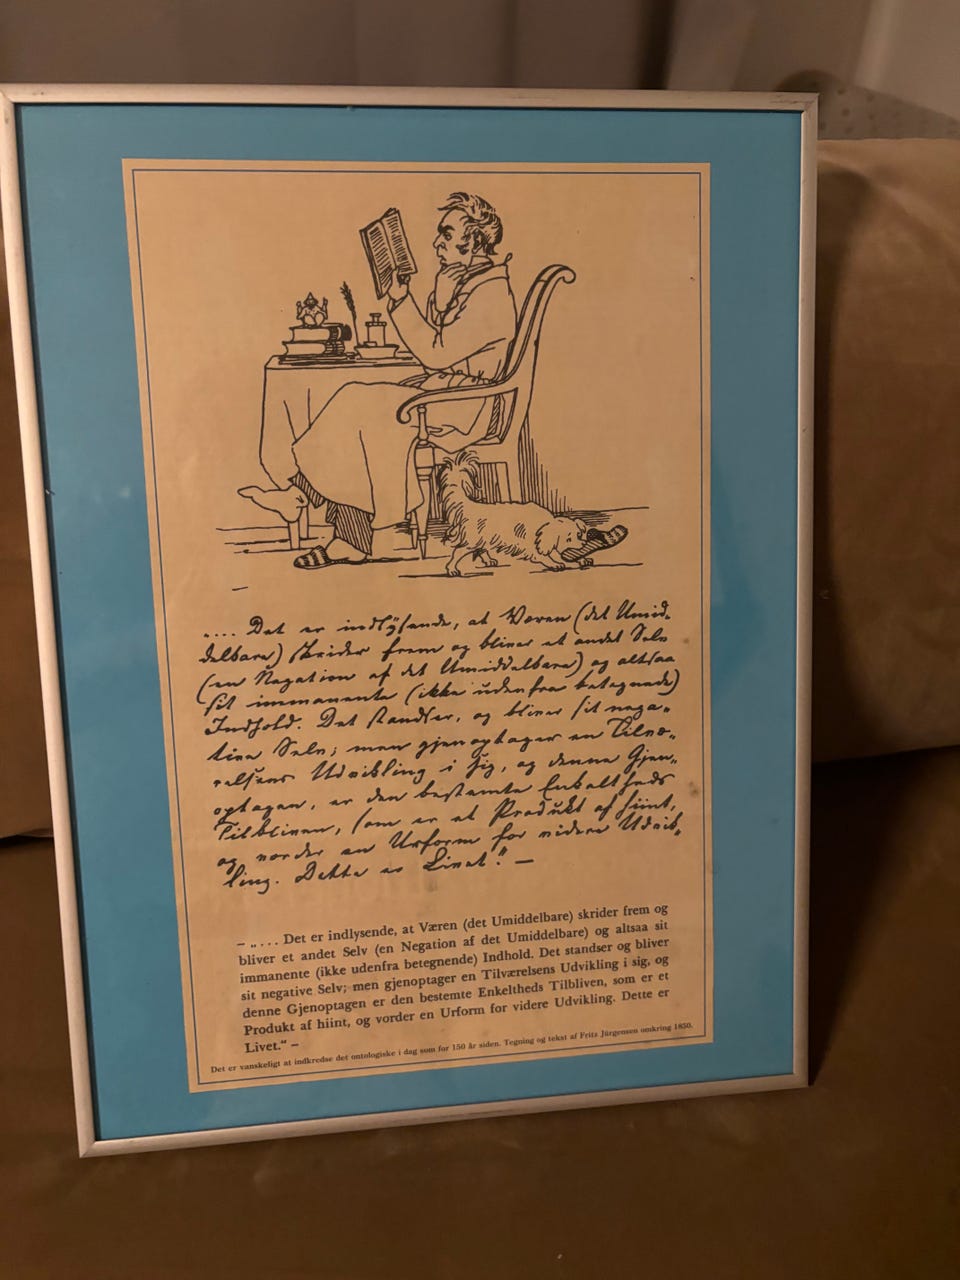 „.... Det er indlysende, at Væren (det Umid-
delbare) skrider frem og bliver et andet Selv
(en Negation af det Umiddelbare) og altsaa
sit immanente (ikke udenfra betegnede)
Indhold. Det standser, og bliver sit nega-
tive Selv; men gjenoptager en Tilvæ-
relsens Udvikling i sig, og denne Gjen-
optagen, er den bestemte Enkeltheds
Tilbliven, som er et Produkt af hiint,
og vorder en Urform for videre Udvik-
ling. Dette er Livet." —
– „... Det er indlysende, at Væren (det Umiddelbare) skrider frem og
bliver et andet Selv (en Negation af det Umiddelbare) og altsaa sit
immanente (ikke udenfra betegnende) Indhold. Det standser og bliver
sit negative Selv; men gjenoptager en Tilværelsens Udvikling i sig, og
denne Gjenoptagen er den bestemte Enkeltheds Tilbliven, som er et
Produkt af hiint, og vorder en Urform for videre Udvikling. Dette er
Livet." –
Det er vanskeligt at indkredse det ontologiske i dag som for 150 år siden. Tegning og tekst af Fritz Jürgensen omkring 1850.